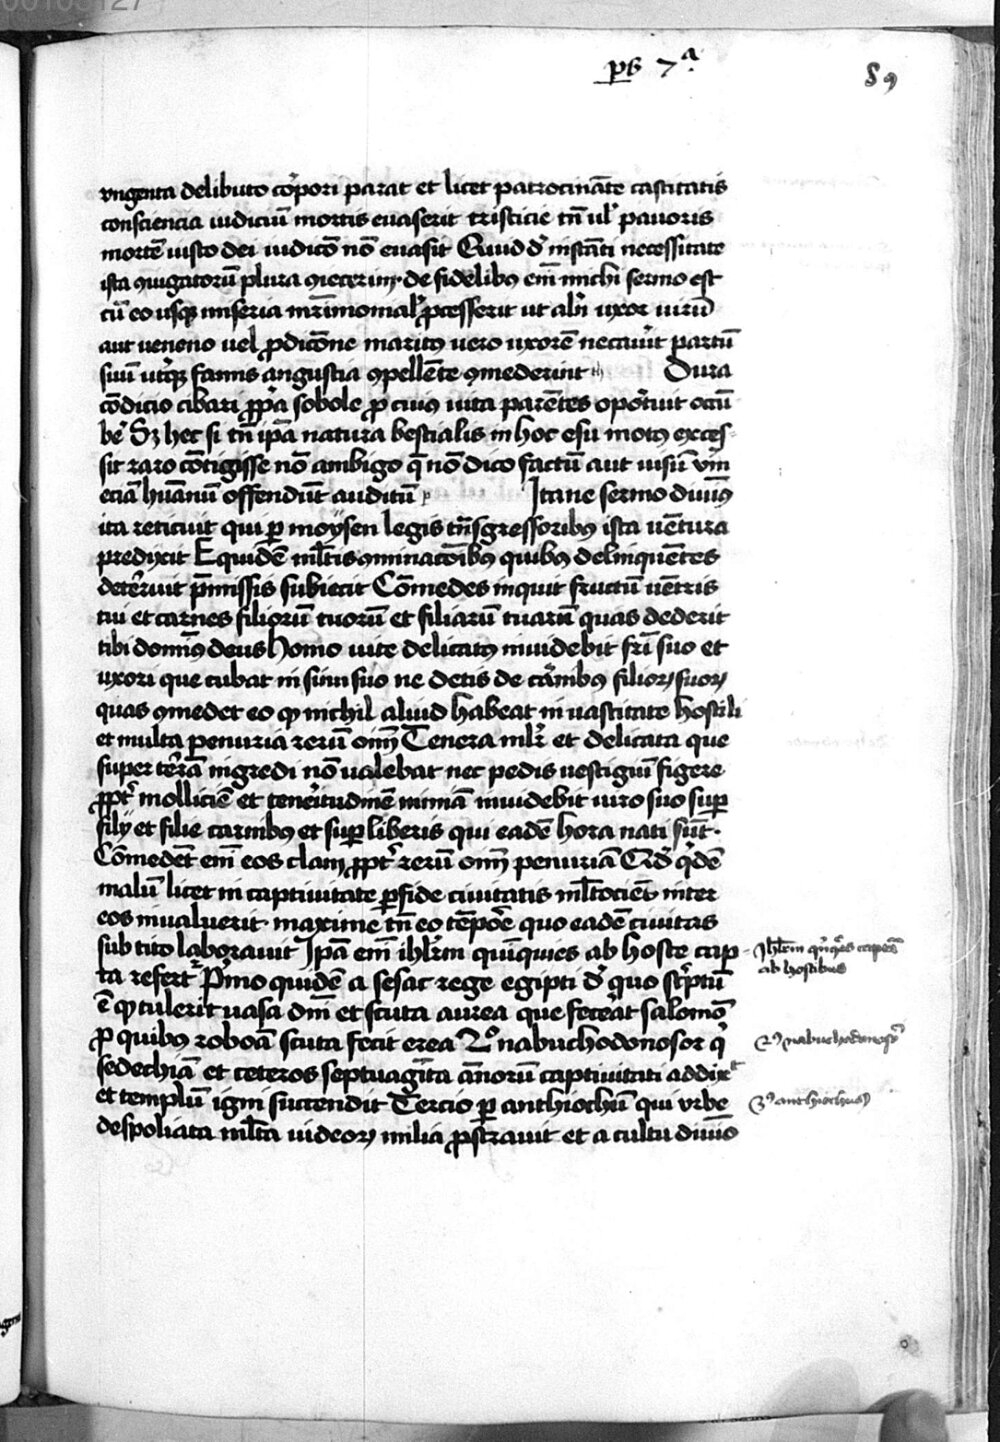 00103127
ps 7ᵃ
89
vngenta delibuto cor̉pori parat et licet patrocināte castitatis
consciencia iudiciū mortis euaserit tristicie tn̄ ul̉ pauoris
mortē iusto dei iudicō nō euasit Quid d̉ instāti necessitate
ista ꝯiugatorū plura ꝯiecerim· de fidelibꝰ em̄ michi sermo est
cū eo usqꝫ miseria mr̄imonial̉ ꝓcesserit ut al̉n uxor uirū
aut ueneno uel ꝓdicōne marito uero uxorē necauīt partū
suū utrīqꝫ famis angustia ꝯpellēte ꝯmederint Dura
cōdicio cibari ꝓp̄a sobole ꝓ cuiꝰ uita parētes oportuit occū
be̓ Sꝫ hec si tn̄ ip̄a natura bestialis in hoc esu motꝰ exces
sit raro cōtigisse nō ambigo q̄ nō dico factū aut uisū vm̄
eciā hūanū offendūt auditū Itane sermo diuinꝰ
ita reticuit qui ꝑ moysen legis tn̄sgressoribꝰ ista uētura
predixit Equidē ml̄tis ꝯminacōibꝰ quibꝰ delinquētes
deter̉ruit p̄missis subiecit Cōmedes inquit fructū uētris
tui et carnes filiorū tuorū et filiarū tuarū quas dederit
tibi dominꝰ deus Homo uite delicatꝰ inuidebit fr̄i suo et
uxori que cubat in sinu suo ne det eis de car̉nibꝰ filioꝝ suoꝝ
quas ꝯmedet eo ꝙ nichil aliud habeat in uastitate hostili
et multa penuria rerū om̄ Tenera ml̉r et delicata que
super ter̉rā ingredi nō ualebat nec pedis uestigiū figere
ꝓpt̉ molliciē et teneritudinē nimiā inuidebit uiro suo suꝑ
filij et filie carnibꝰ et suꝑ liberis qui eadē hora nati sūt·
Cōmedēt em̄ eos clam ꝓpt̉ rerū om̄ penuriā Qd̓ q̉dē
malū licet in captiuitate ꝑfide ciuitatis ml̄tociēs inter
eos inualuerit· maxime tn̄ eo tēpor̉e quo eadē ciuitas
sub tito laborauit Ipā em̄ ihl̄rm quīquies ab hoste cap
ta refert̉ P̉mo quidē a sesac rege egipti d̉ quo scͥptū
ē ꝙ tulerit uasa dn̄i et scuta aurea que fecēat salomō
ꝓ quibꝰ roboā scuta fecit erea 2º nabuchodonosor q̉
sedechiā et ceteros septuagīta ānorū captiuitati addixᵗ
et templū igni succendit Tercio ꝑ anthiochū qui vrbe
despoliata ml̄ta iudeoꝝ milia ꝓstrauit et a cultu diuīo
Ihl̄rm qīqīes capta
ab hostibus
2º nabuchodonosor̉
3º anthiochus